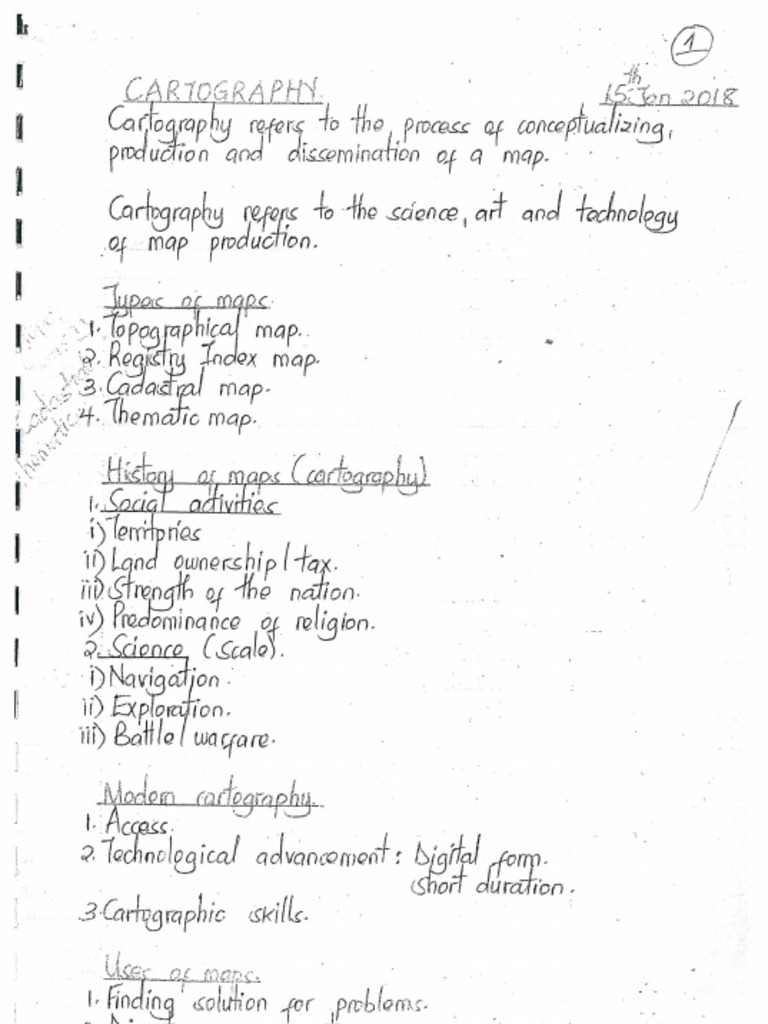 1
CARTOGRAPHY.
15th Jan 2018
Cartography refers to the process of conceptualizing,
production and dissemination of a map.
Cartography refers to the science, art and technology
of map production.
Types of maps.
1. Topographical map.
2. Registry Index map.
3. Cadastral map.
4. Thematic map.
Cadastral
Thematic
History of maps (cartography)
1. Social activities
i) Territories
ii) Land ownership / tax.
iii) Strength of the nation.
iv) Predominance of religion.
2. Science (Scale).
i) Navigation.
ii) Exploration.
iii) Battle / warfare.
Modern cartography.
1. Access.
2. Technological advancement: Digital form.
Short duration.
3. Cartographic skills.
Uses of maps.
1. Finding solution for problems.